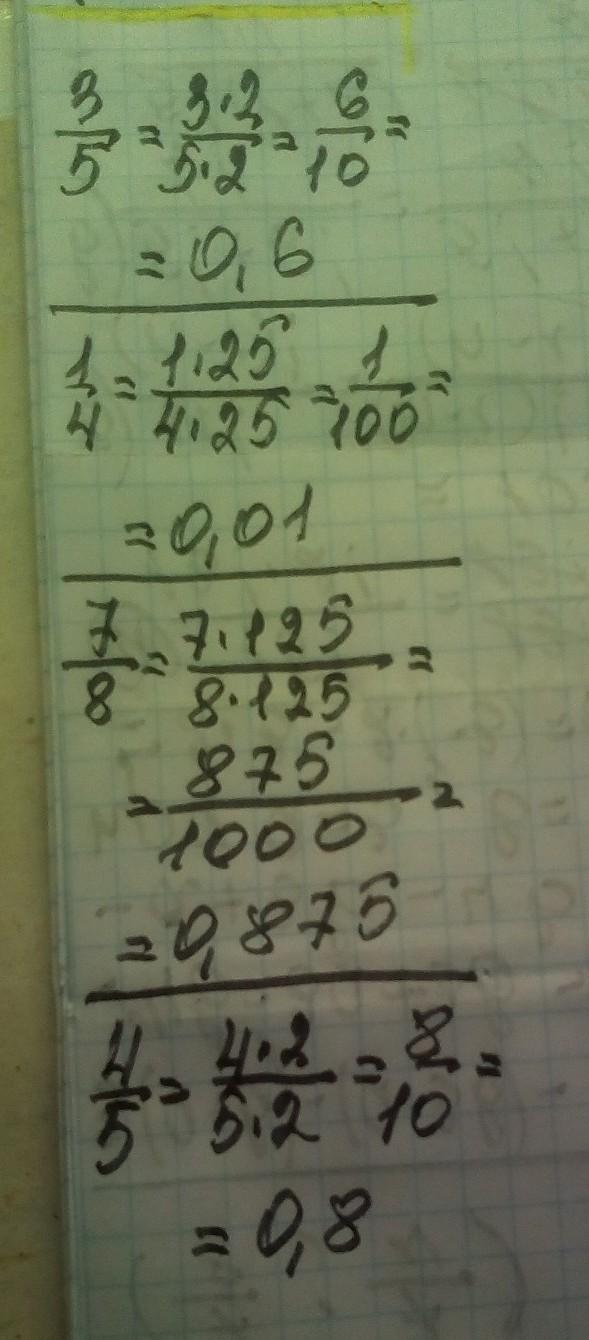 3/5 = 3·2/5·2 = 6/10 =
= 0,6
1/4 = 1·25/4·25 = 1/100 =
= 0,01
7/8 = 7·125/8·125 =
= 875/1000 =
= 0,875
4/5 = 4·2/5·2 = 8/10 =
= 0,8